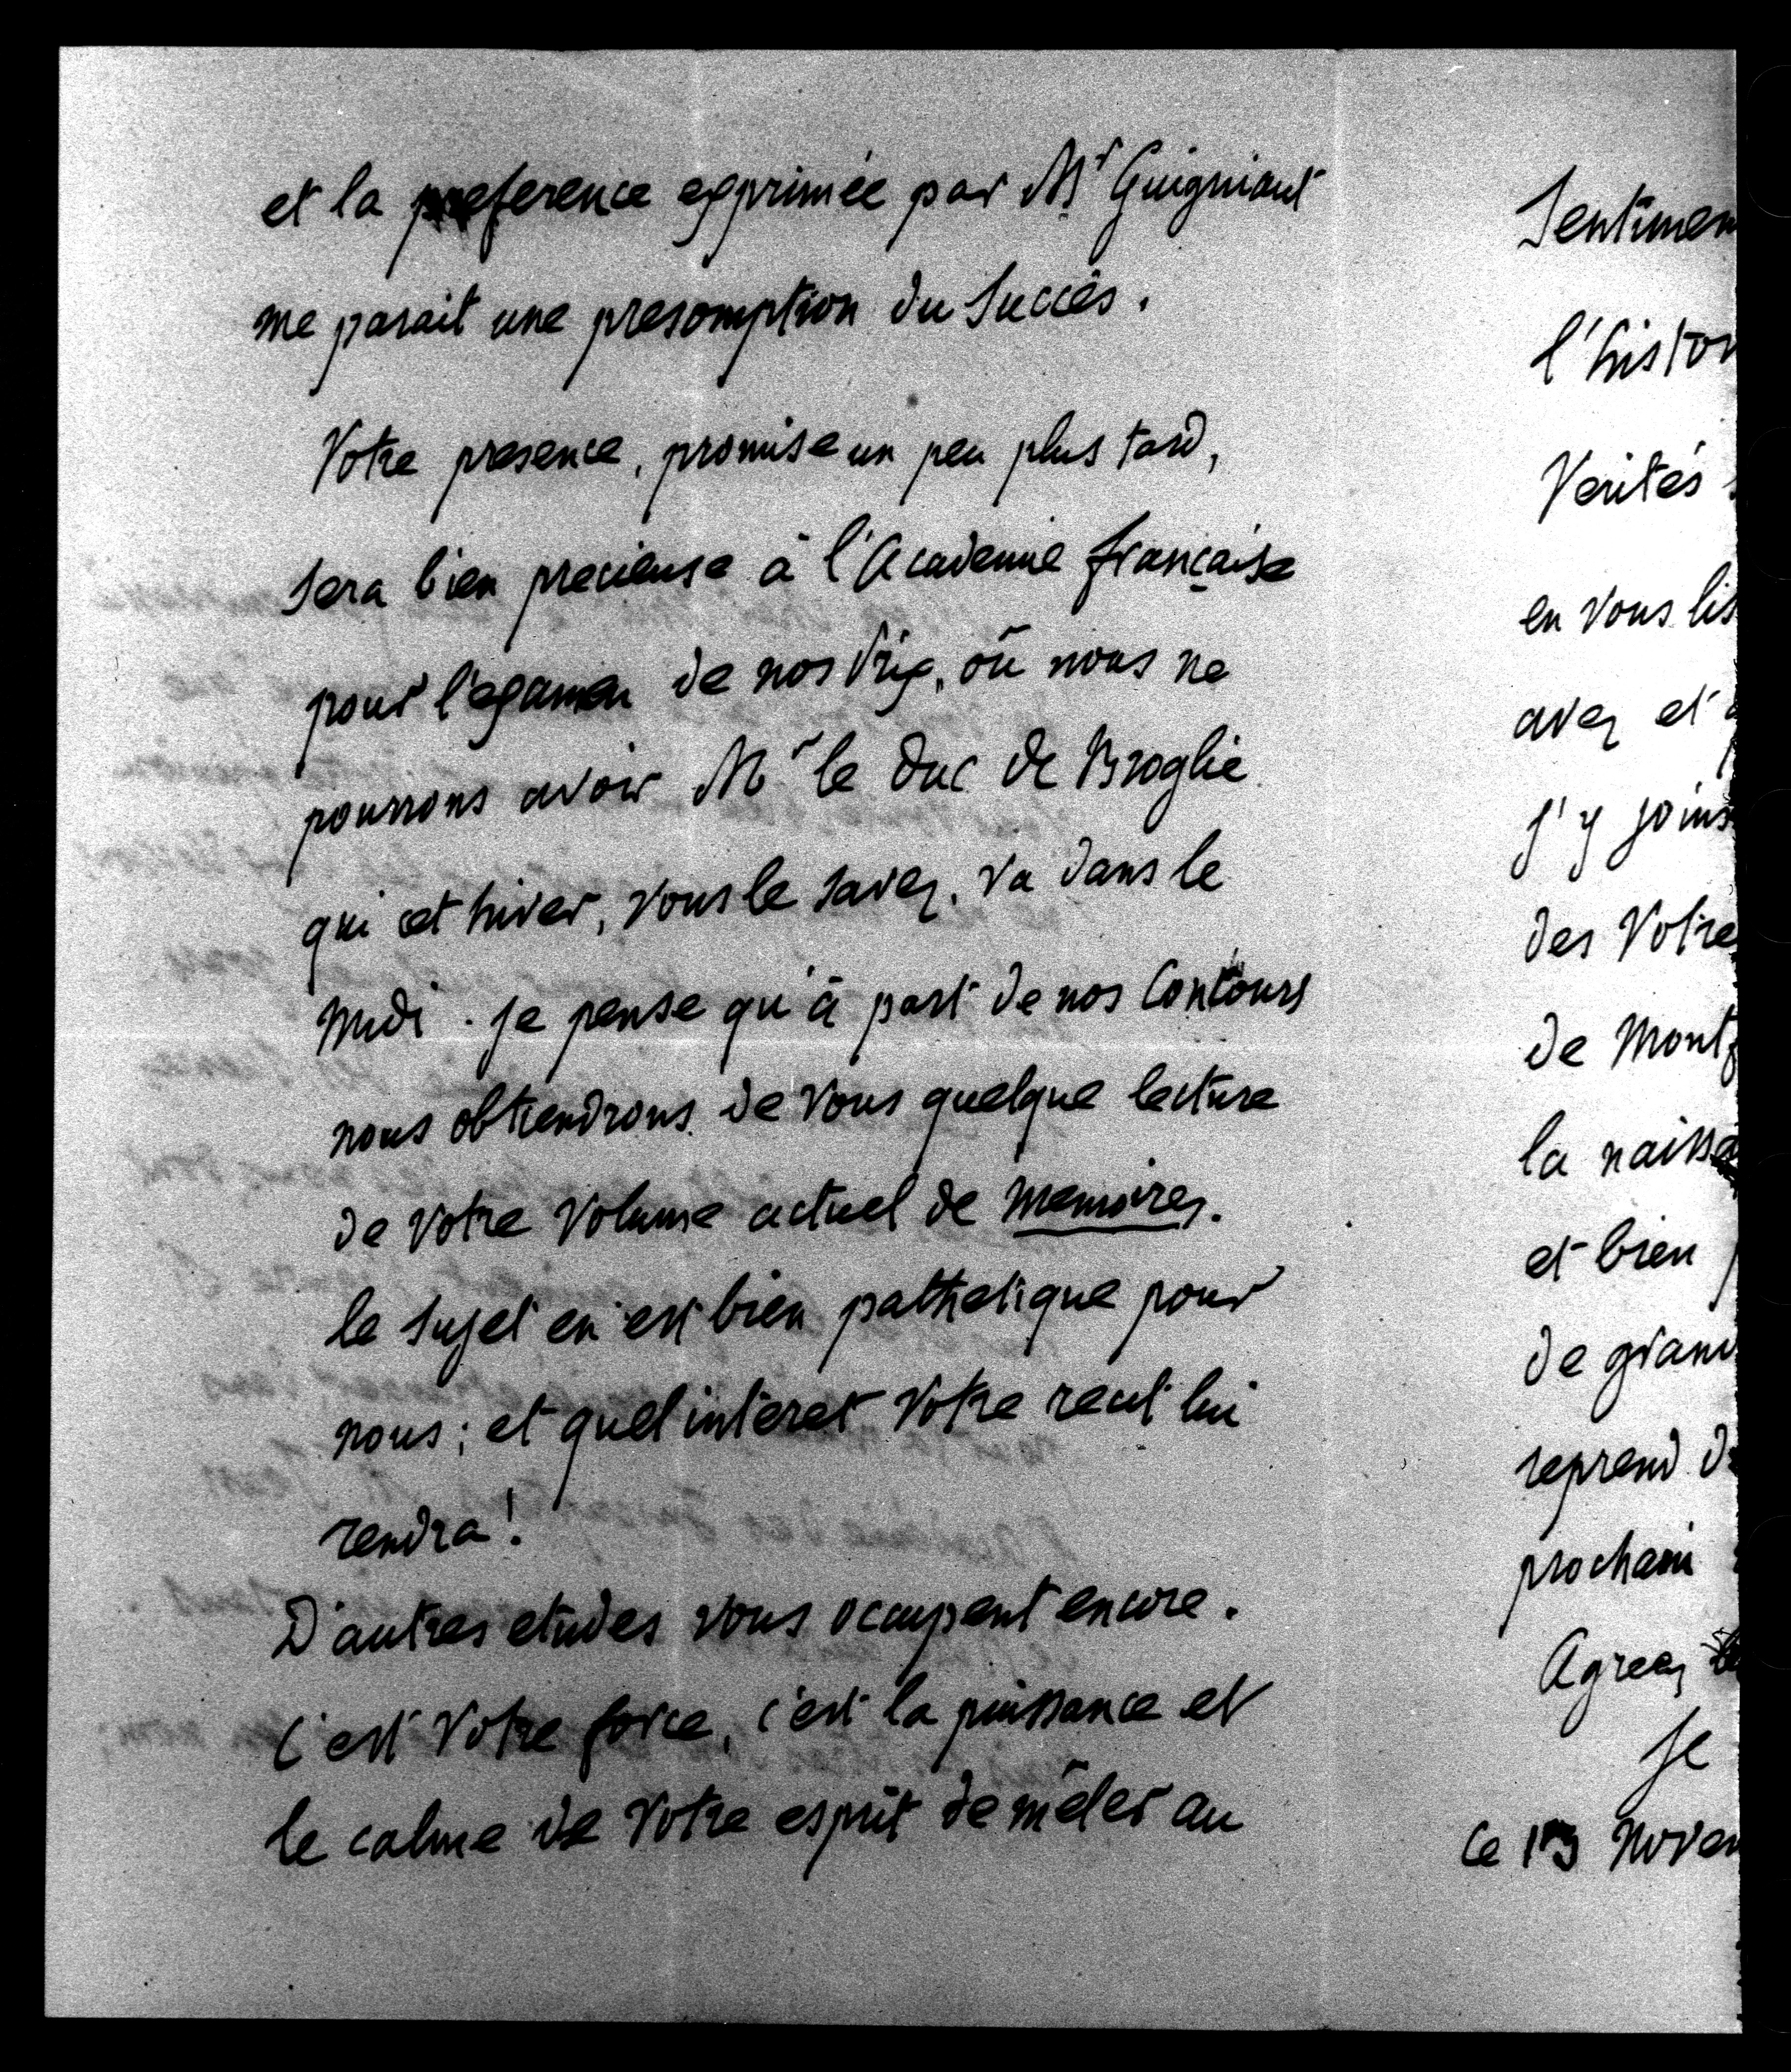 et la preference exprimée par Mr Guigniaut
me parait une presomption du Succès.
Votre presence, promise un peu plus tard,
Sera bien precieuse à l'Academie française
pour l'examen de nos Prix, où nous ne
pourrons avoir Mr le Duc de Broglie
qui cet hiver, vous le savez, va dans le
Midi. Je pense qu'à part de nos Contours
nous obtiendrons de vous quelque lecture
de Votre Volume actuel de Memoires.
le Sujet en est bien pathetique pour
nous; et quel intéret Votre recit lui
rendra!
D'autres etudes vous occupent encore.
C'est Votre force, c'est la puissance et
le calme de Votre esprit de mêler au
Sentimen
l'histor
Verités
en vous lis
avez et
J'y joins
des Votre
de Mont
la naissa
et bien
de grand
reprend
prochain
Agreez
Je
Ce 13 Novem